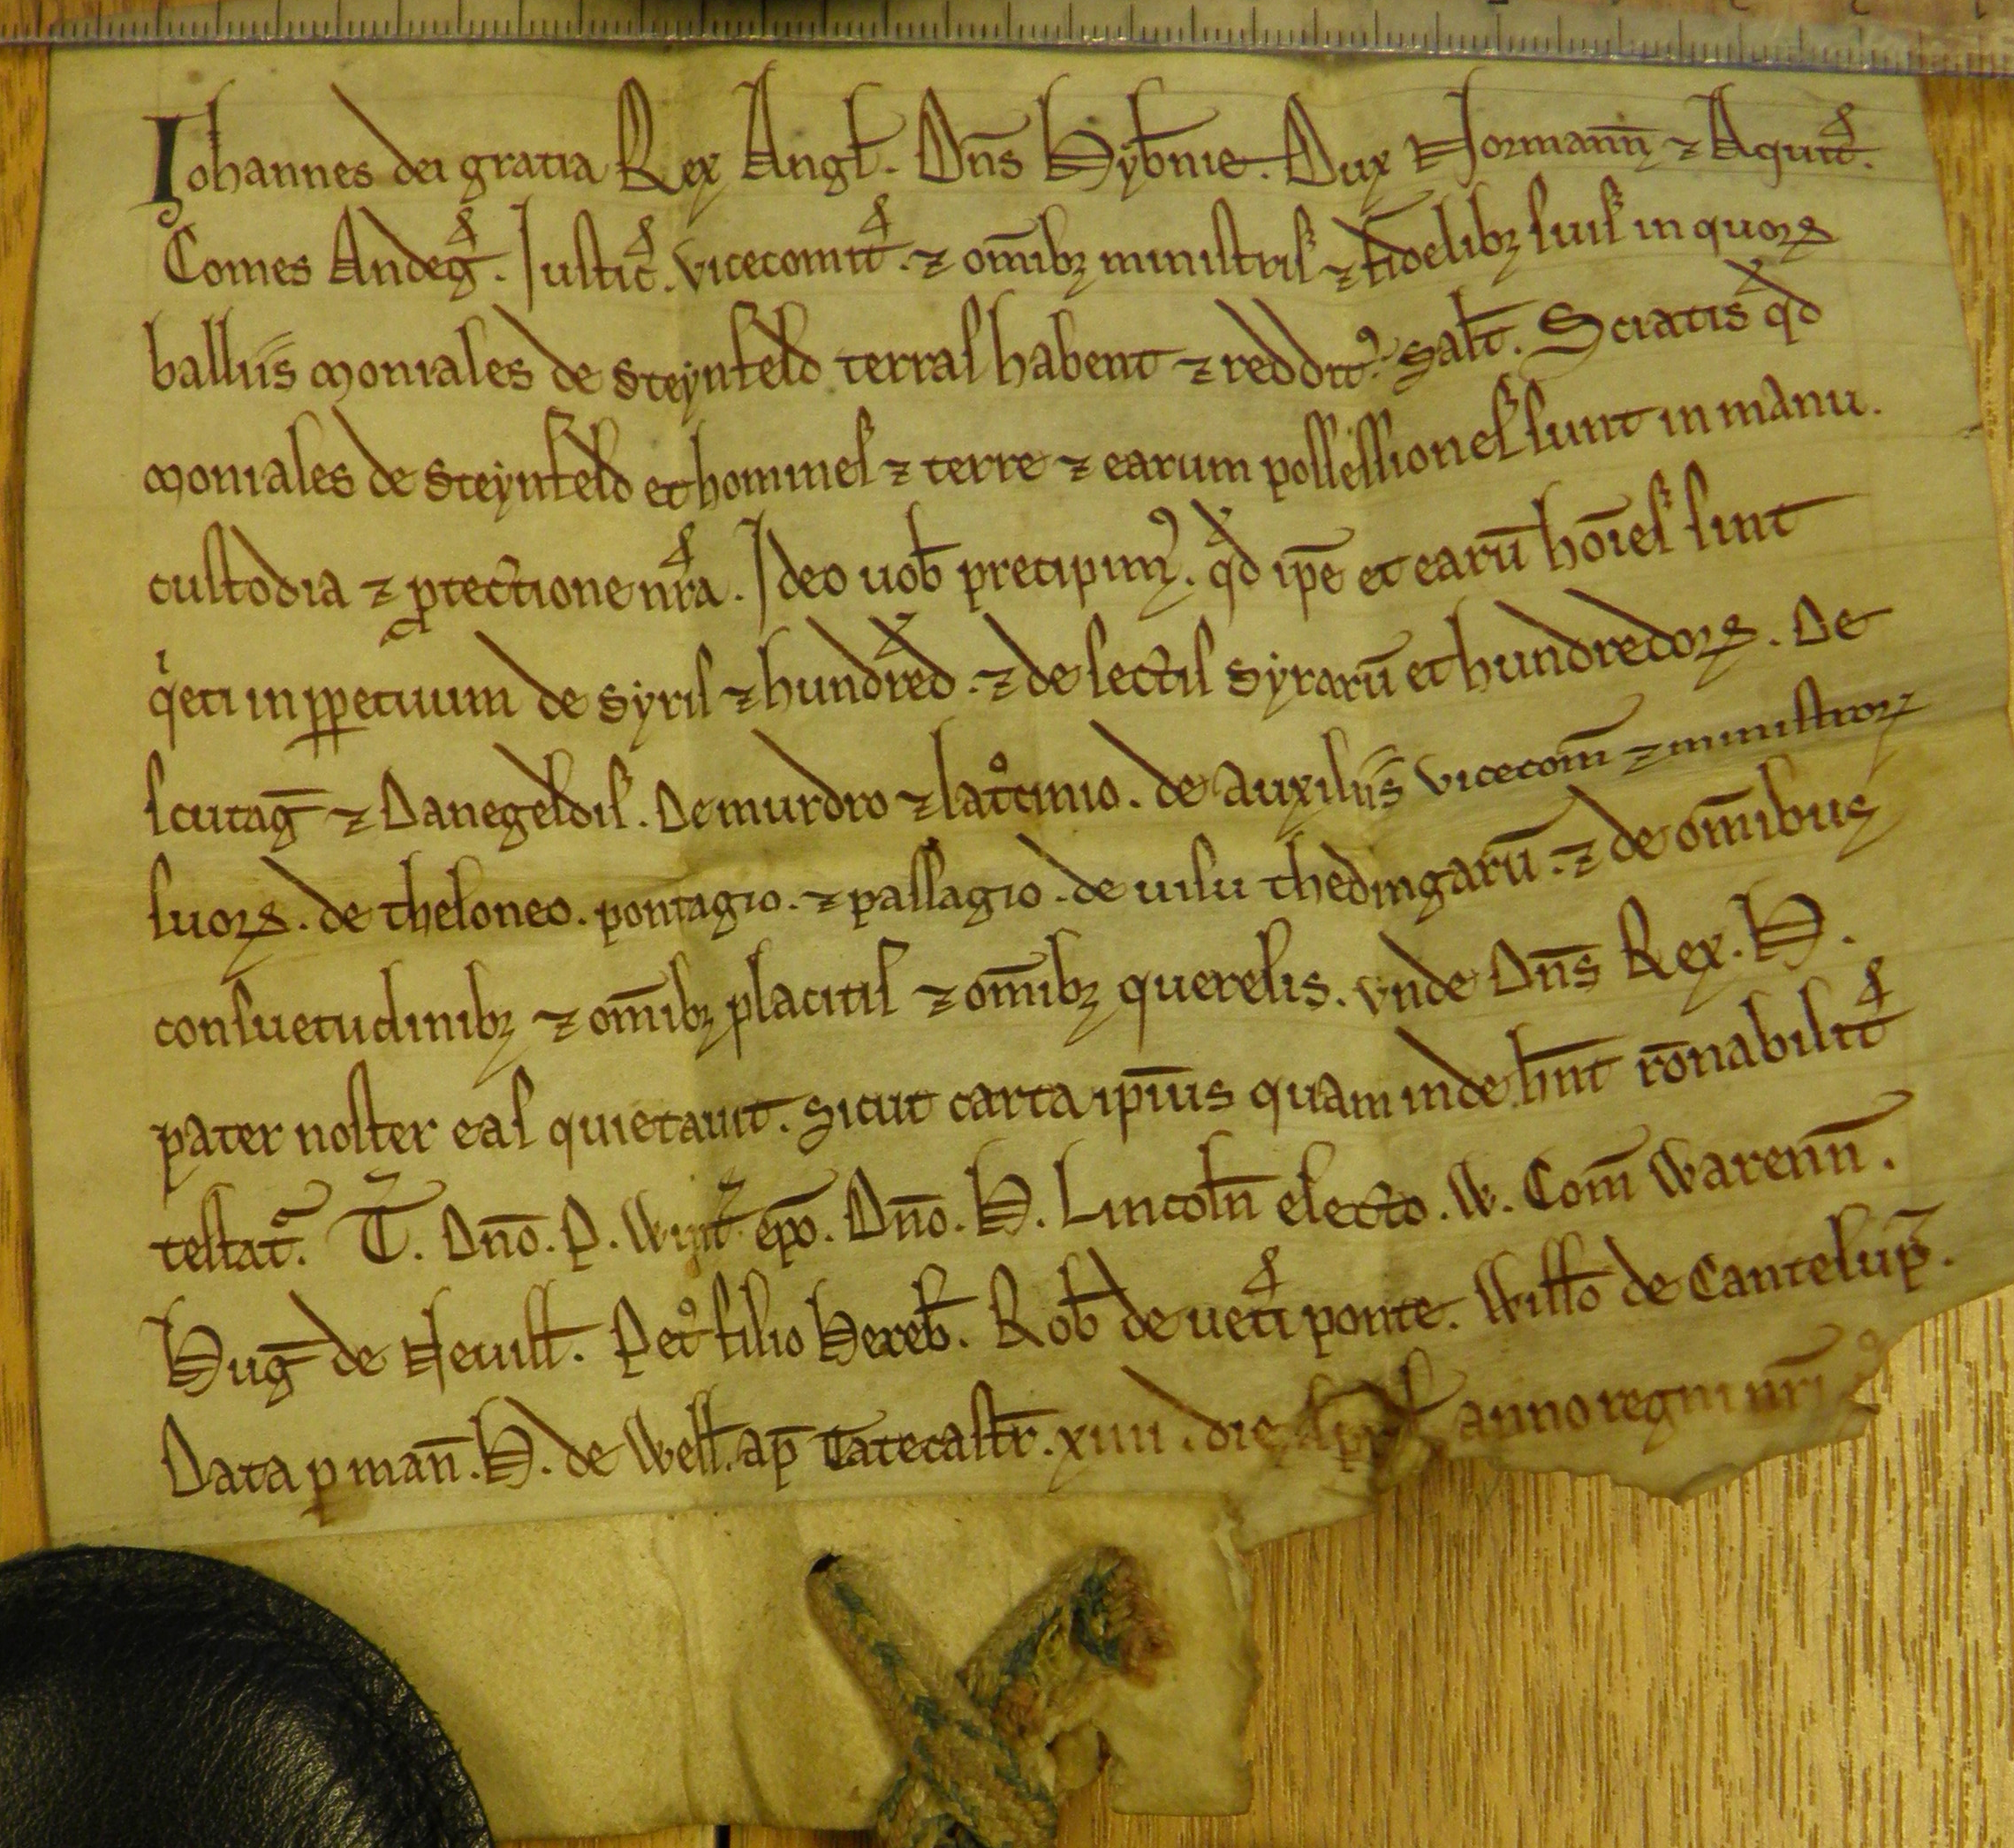 Iohannes dei gratia Rex Angł. Dn̄s Hyb̄nie. Dux Normann̄ ⁊ Aquit̄.
Comes Andeḡ. Iustic̄. vicecomit̄. ⁊ om̄ibꝫ ministris ⁊ fidelibꝫ suis in quoꝝ
balliis moniales de Steynfeld terras habent ⁊ reddit᷒. Salt̄. Sciatis qd
moniales de Steynfeld et homines ⁊ terre ⁊ earum possessiones sunt in manu.
custodia ⁊ ꝓtectione nr̄a. Ideo uob̄ precipim᷒. qd ip̄e et earū hoīes sint
qⁱeti in ꝑpetuum de Syris ⁊ hundred. ⁊ de sectis Syrarū et hundredoꝝ. De
scutaḡ ⁊ Danegeldis. De murdro ⁊ lat°cinio. de auxiliis vicecom̄ ⁊ ministroꝝ
suoꝝ. de theloneo. pontagio. ⁊ passagio. de uisu thedingarū. ⁊ de om̄ibus
consuetudinibꝫ ⁊ om̄ibꝫ placitis ⁊ om̄ibꝫ querelis. vnde Dn̄s Rex. H.
pater noster eas quietauit. Sicut carta ipīus quam inde hn̄t rōnabilit̄
testat᷑. T. Dn̄o. P. Wint̄ ep̄o. Dn̄o. H. Lincoln̄ electo. W. Com̄ Warenn̄.
Huḡ de Neuill̄. Pet° filio Hereb̄. Rob̄ de uet̄i ponte. Willo de Cantelup̄.
Data p man̄. H. de Well̄. ap̄ Tatecastr̄. xiiii. die April̄ anno regni nr̄i